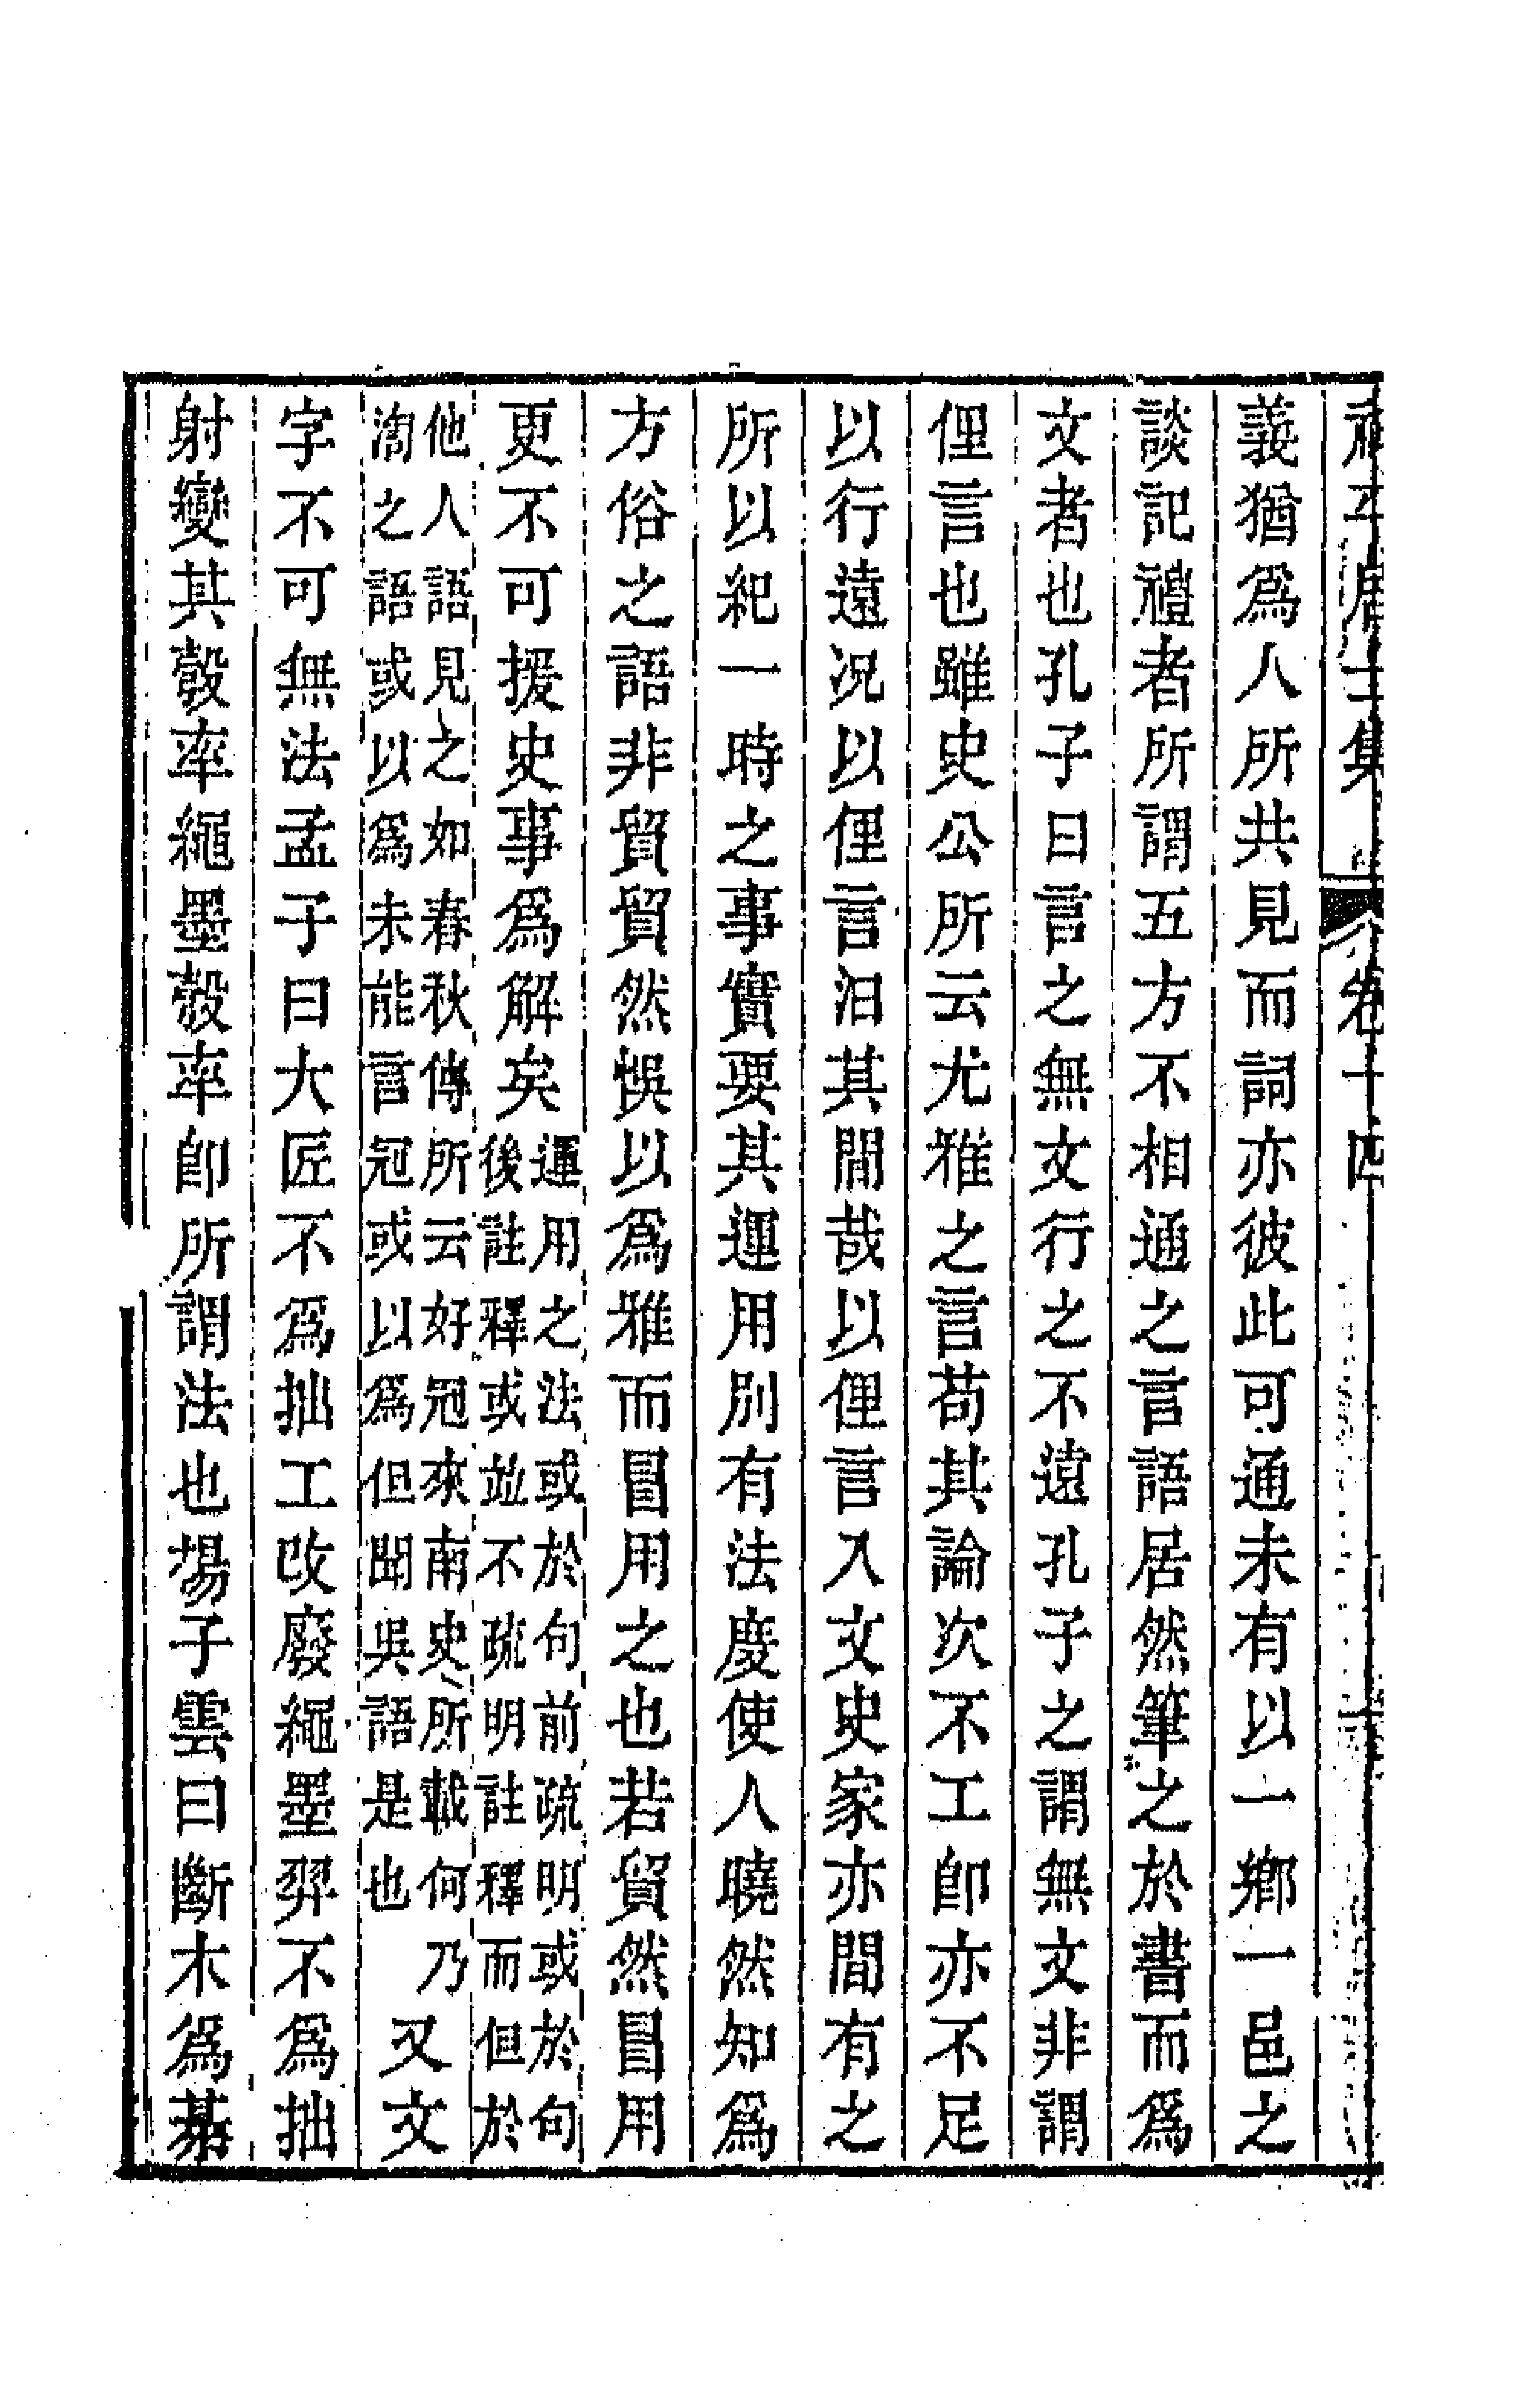 居士集 卷十四
義猶爲人所共見而詞亦彼此可通未有以一鄉一邑之
談記禮者所謂五方不相通之言語居然筆之於書而爲
文者也孔子曰言之無文行之不遠孔子之謂無文非謂
俚言也雖史公所云尤雅之言苟其論次不工卽亦不足
以行遠况以俚言汨其間哉以俚言入文史家亦間有之
所以紀一時之事實要其運用別有法慶使人曉然知爲
方俗之語非貿貿然悞以爲雅而冒用之也若貿然冒用
更不可援史事爲解矣運用之法或於句前疏明或於句
後註釋或並不疏明註釋而但於
他人語見之如春秋傳所云好冠來南史所載何乃
渹之語或以爲未能言冠或以爲但聞吳語是也又文
字不可無法孟子曰大匠不爲拙工改廢繩墨羿不爲拙
射變其彀率繩墨彀率卽所謂法也揚子雲曰斷木爲棊